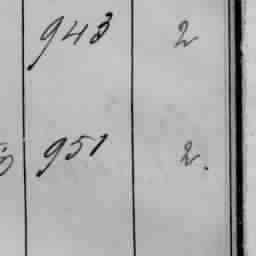 943 2
951 2.